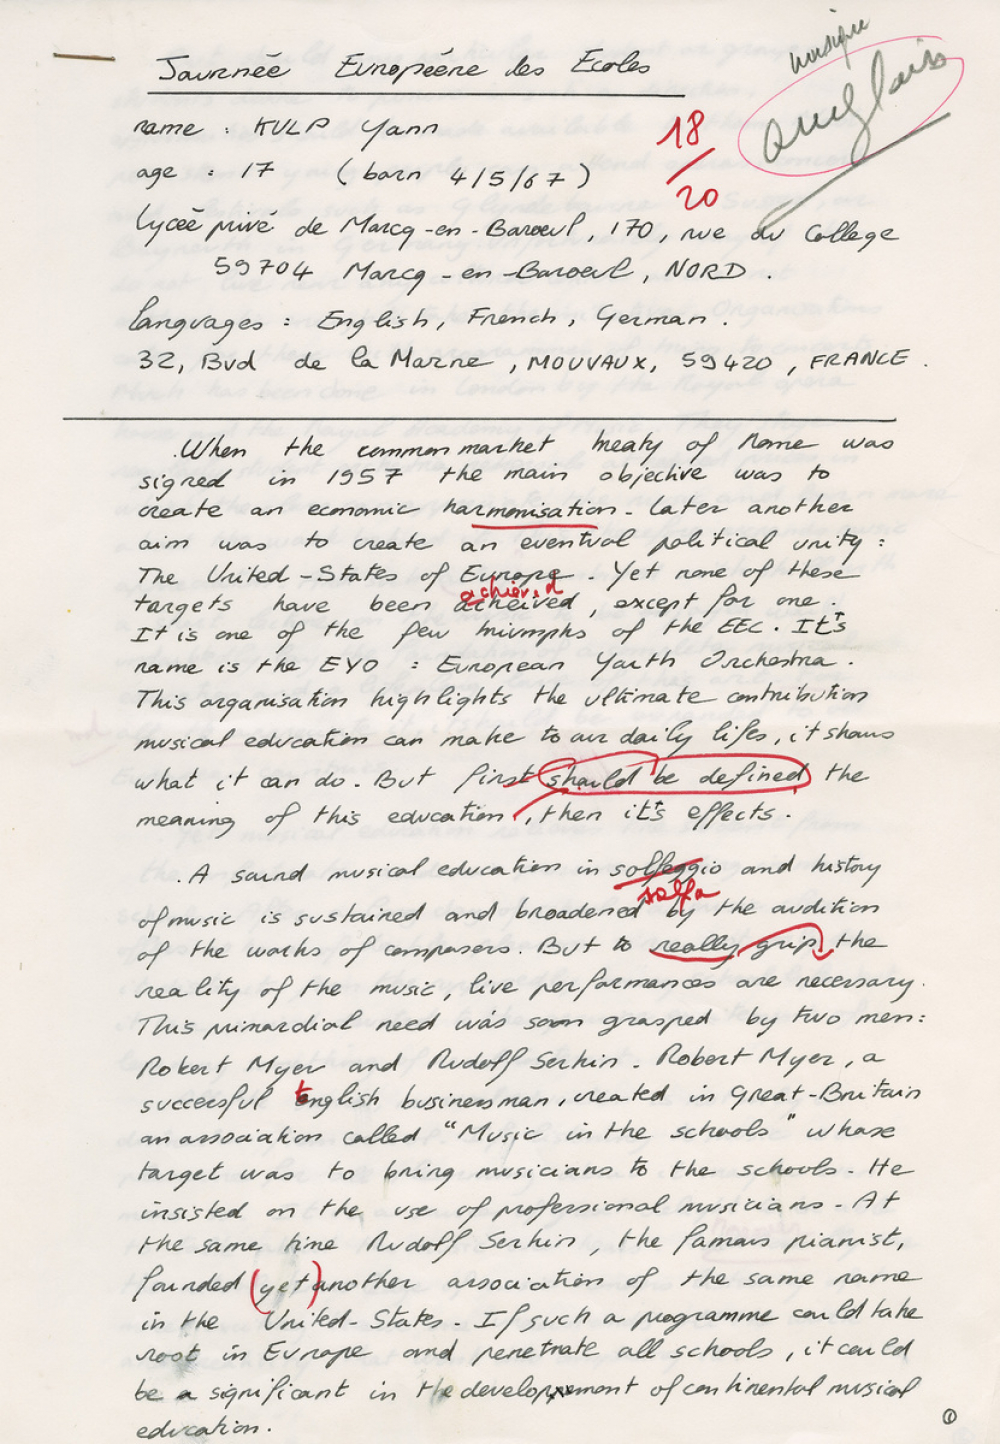 musique
anglais
Journée Européene des Ecoles
name : KULP Yann
18/20
age : 17 (born 4/5/67)
Lycée privé de Marcq-en-Baroeul, 170, rue du College
59704 Marcq-en-Baroeul, NORD.
languages : English, French, German.
32, Bvd de la Marne, MOUVAUX, 59420, FRANCE.
.When the common market treaty of Rome was
signed in 1957 the main objective was to
create an economic harmonisation. Later another
aim was to create an eventual political unity :
The United-States of Europe. Yet none of these
achieved
targets have been acheived, except for one.
It is one of the few triumphs of the EEC. It's
name is the EYO : European Youth Orchestra.
This organisation highlights the ultimate contribution
musical education can make to our daily lifes, it shows
what it can do. But first should be defined the
meaning of this education, then it's effects.
.A sound musical education in solfeggio and history
solfa
of music is sustained and broadened by the audition
of the works of composers. But to really grip the
reality of the music, live performances are necessary.
This primordial need was soon grasped by two men:
Robert Myer and Rudolf Serkin. Robert Myer, a
successful English businessman, created in Great-Britain
an association called "Music in the schools" whose
target was to bring musicians to the schools. He
insisted on the use of professional musicians. At
the same time Rudolf Serkin, the famous pianist,
founded (yet) another association of the same name
in the United-States. If such a programme could take
root in Europe and penetrate all schools, it could
be a significant in the development of continental musical
education.
1